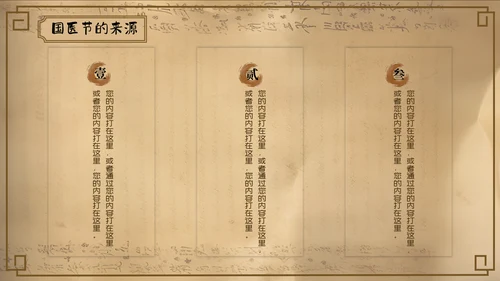 国医节的来源
壹
您的内容打在这里，或者通过您的内容打在这里
或者您的内容打在这里，您的内容打在这里，
贰
您的内容打在这里，或者通过您的内容打在这里
或者您的内容打在这里，您的内容打在这里，
叁
您的内容打在这里，或者通过您的内容打在这里
或者您的内容打在这里，您的内容打在这里，